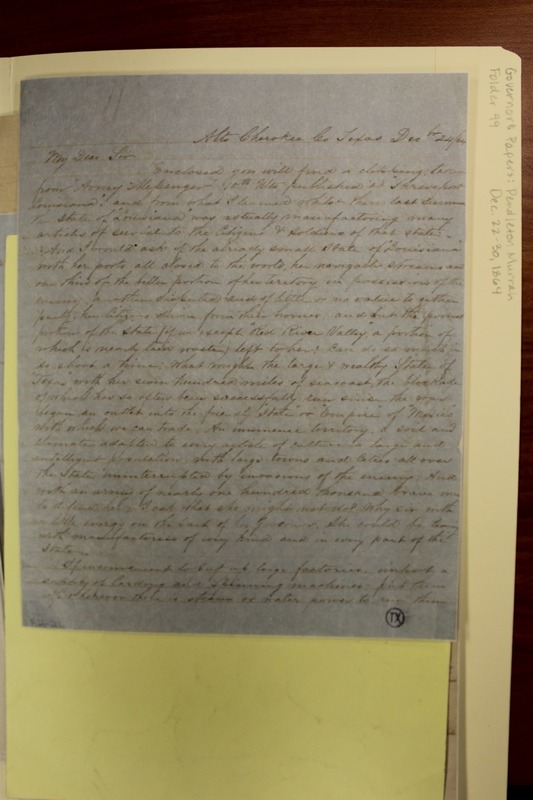 Alto Cherokee Co Texas Decbr 24/64
My Dear Sir
Enclosed you will find a
from "Army Messenger" published at Shreveport
Louisiana" and from what I learned whilst there last Summer
State of "Louisiana" was actually manufacturing many
articles of service to the Citizens & Soldiers of that State.
And I would ask if the already small State of "Louisiana"
with her ports all closed to the world, her navigable streams and
one third of the better portion of her territory in possession of the
enemy, another disputed and of little or no value to either
party, her Citizens driven from their homes, and but the poorest
portion of the State (if we except Red River Valley, a portion of
which is nearly laid waste) left to her: Can do so much in
so short a time: What might the large & wealthy State of
Texas with her seven hundred miles of seacoast, the blockade
of which has so often been successfully run since the war
began an outlet into the friendly State or "Empire" of Mexico
with which we can trade. An immense territory, a soil and
climate adapted to every article of culture a large and
intelligent population, with large towns and Cities all over
the State uninterrupted by invasions of the enemy. And
with an army of nearly one hundred thousand brave men
to defend her. I ask what she might not do? Why sir with
a little energy on the part of her Governor, She could be
with manufactories of every kind and in every part of the
State.
If inconvenient to put up large factories, import a
supply of Carding and Spinning machines: put them
up wherever there is steam or water power to run them
TX
Governor's Papers: Pendleton Murrah
Dec. 22-30, 1864
Folder 99